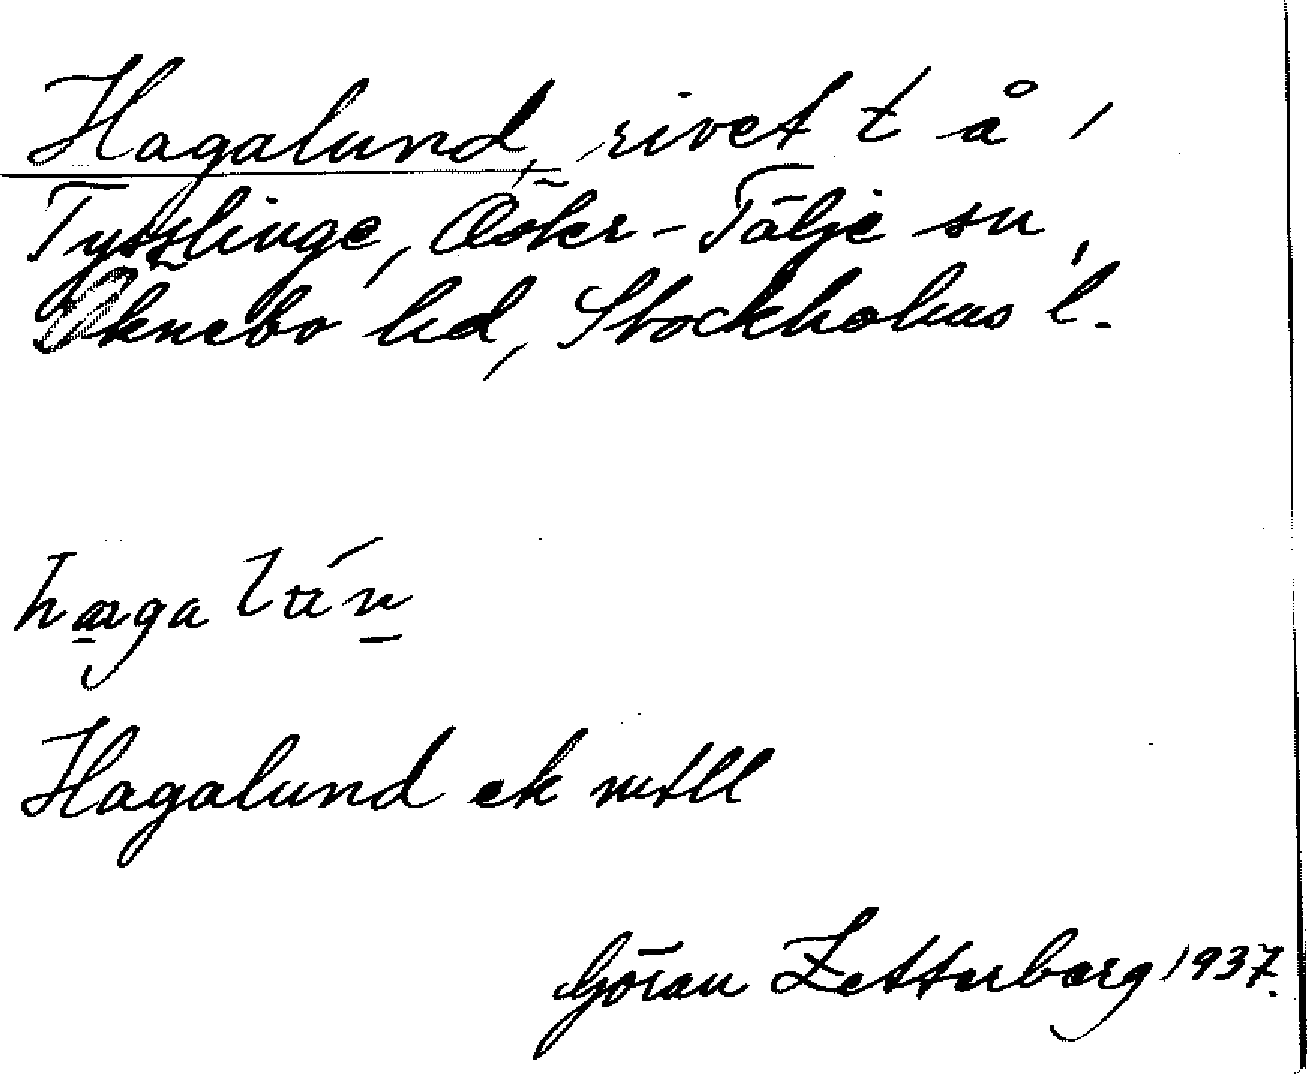 Hagalund, rivet t å,
Tysslinge, Ööker-Tälje sn,
Öknebo hd, Stockholms l.
hagalún
Hagalund ek mtll
Göran Zetterberg 1937.